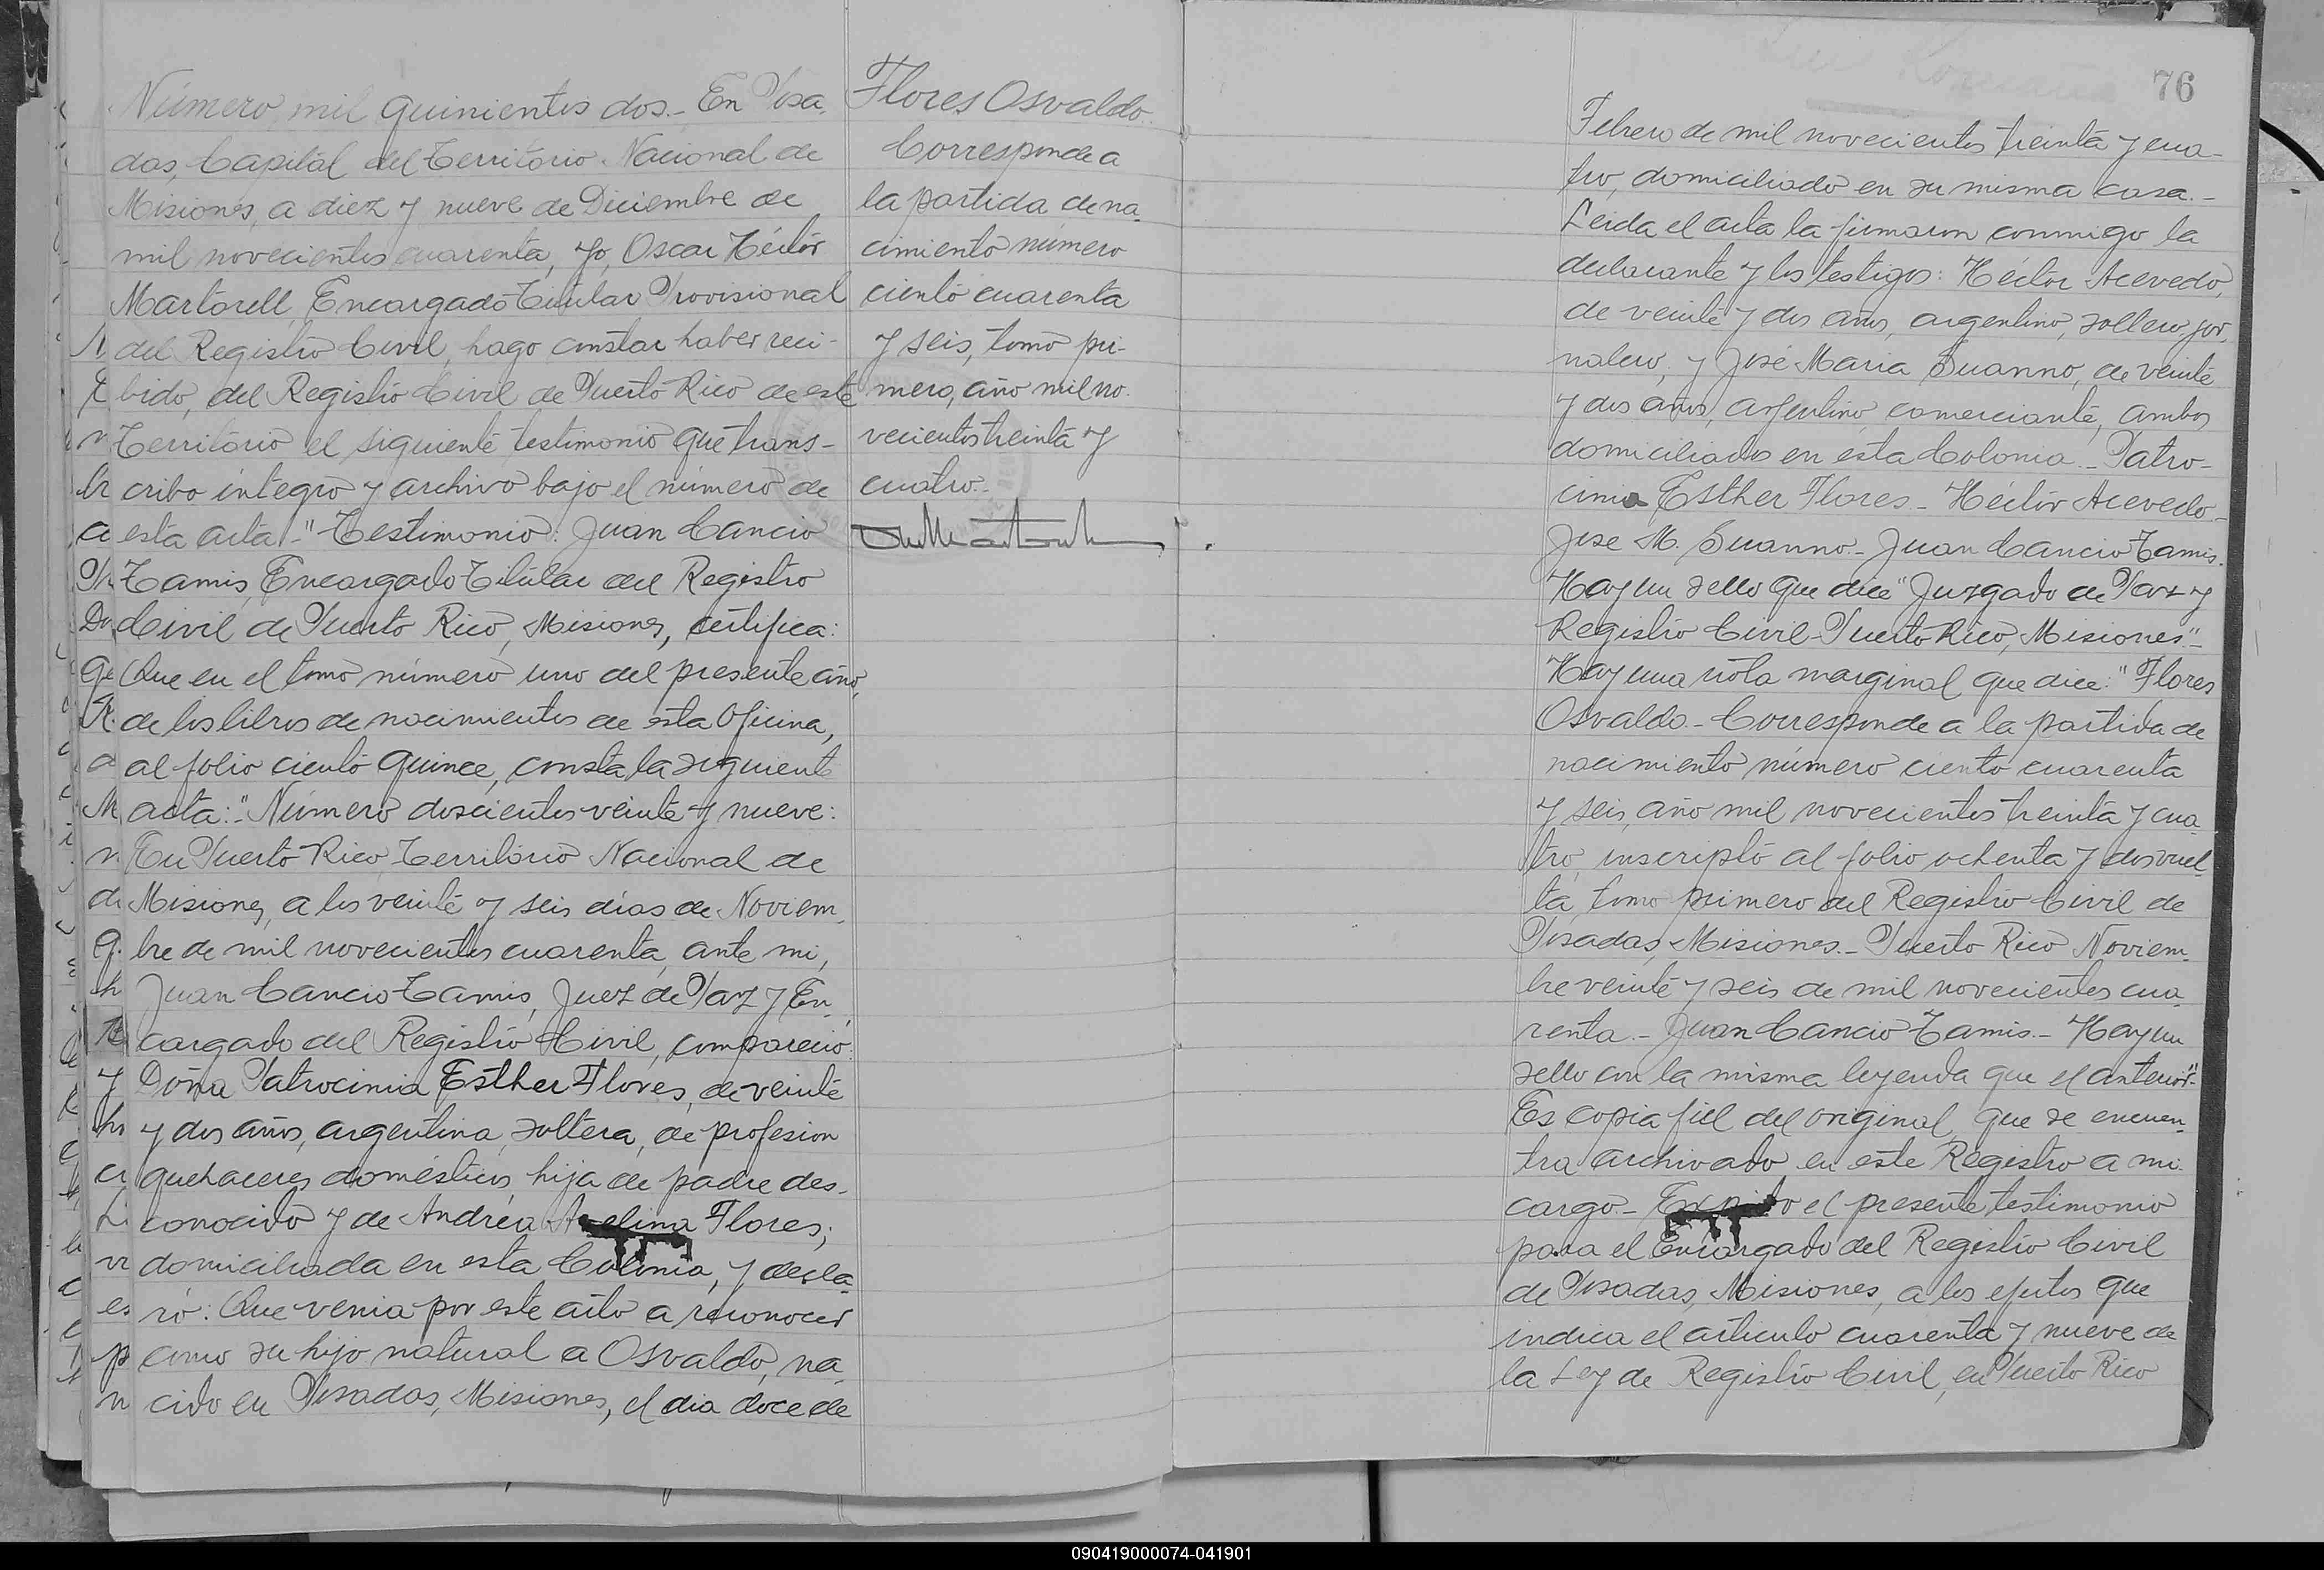 Número mil quinientos dos.- En Posa-
das, Capital del Territorio Nacional de
Misiones, a diez y nueve de Diciembre de
mil novecientos cuarenta, yo, Oscar Héctor
Martorell, Encargado Titular Provisional
del Registro Civil, hago constar haber reci-
bido, del Registro Civil de Puerto Rico de este
Territorio el siguiente testimonio que trans-
cribo íntegro y archivo bajo el número de
esta acta.- "Testimonio: Juan Cancio
Tamis, Encargado Titular del Registro
Civil de Puerto Rico, Misiones, certifica:
Que en el tomo número uno del presente año,
de los libros de nacimientos de esta Oficina,
al folio ciento quince, consta la siguiente
acta:- "Número doscientos veinte y nueve:
En Puerto Rico, Territorio Nacional de
Misiones, a los veinte y seis días de Noviem-
bre de mil novecientos cuarenta, ante mi,
Juan Cancio Tamis, Juez de Paz y En-
cargado del Registro Civil, compareció:
Doña Patrocinia Esther Flores, de veinte
y dos años, argentina, soltera, de profesion
quehaceres domésticos, hija de padre des-
conocido y de Andrea Avelina Flores;
domiciliada en esta Colonia, y decla-
ró: Que venia por este acto a reconocer
como su hijo natural a Osvaldo, na-
cido en Posadas, Misiones, el dia doce de
Flores Osvaldo.
Corresponde a
la partida de na-
cimiento número
ciento cuarenta
y seis, tomo pri-
mero, año mil no-
vecientos treinta y
cuatro.-
76
Febrero de mil novecientos treinta y cua-
tro, domiciliado en su misma casa.-
Leida el acta la firmaron conmigo la
declarante y los testigos: Héctor Acevedo,
de veinte y dos años, argentino, soltero, jor-
nalero, y José Maria Suanno, de veinte
y dos años, argentino, comerciante, ambos
domiciliados en esta Colonia.- Patro-
cinia Esther Flores.- Héctor Acevedo.-
Jose M. Suanno.- Juan Cancio Tamis.
Hay un sello que dice "Juzgado de Paz y
Registro Civil - Puerto Rico, Misiones".-
Hay una nota marginal que dice: "Flores
Osvaldo.- Corresponde a la partida de
nacimiento número ciento cuarenta
y seis, año mil novecientos treinta y cua-
tro, inscripto al folio ochenta y dos vuel-
ta, tomo primero del Registro Civil de
Posadas, Misiones.- Puerto Rico Noviem-
bre veinte y seis de mil novecientos cua-
renta.- Juan Cancio Tamis.- Hay un
sello con la misma leyenda que el anterior".-
Es copia fiel del original, que se encuen-
tra archivado en este Registro a mi
cargo.- Expido el presente testimonio
para el Encargado del Registro Civil
de Posadas, Misiones, a los efectos que
indica el articulo cuarenta y nueve de
la Ley de Registro Civil, en Puerto Rico
090419000074-041901